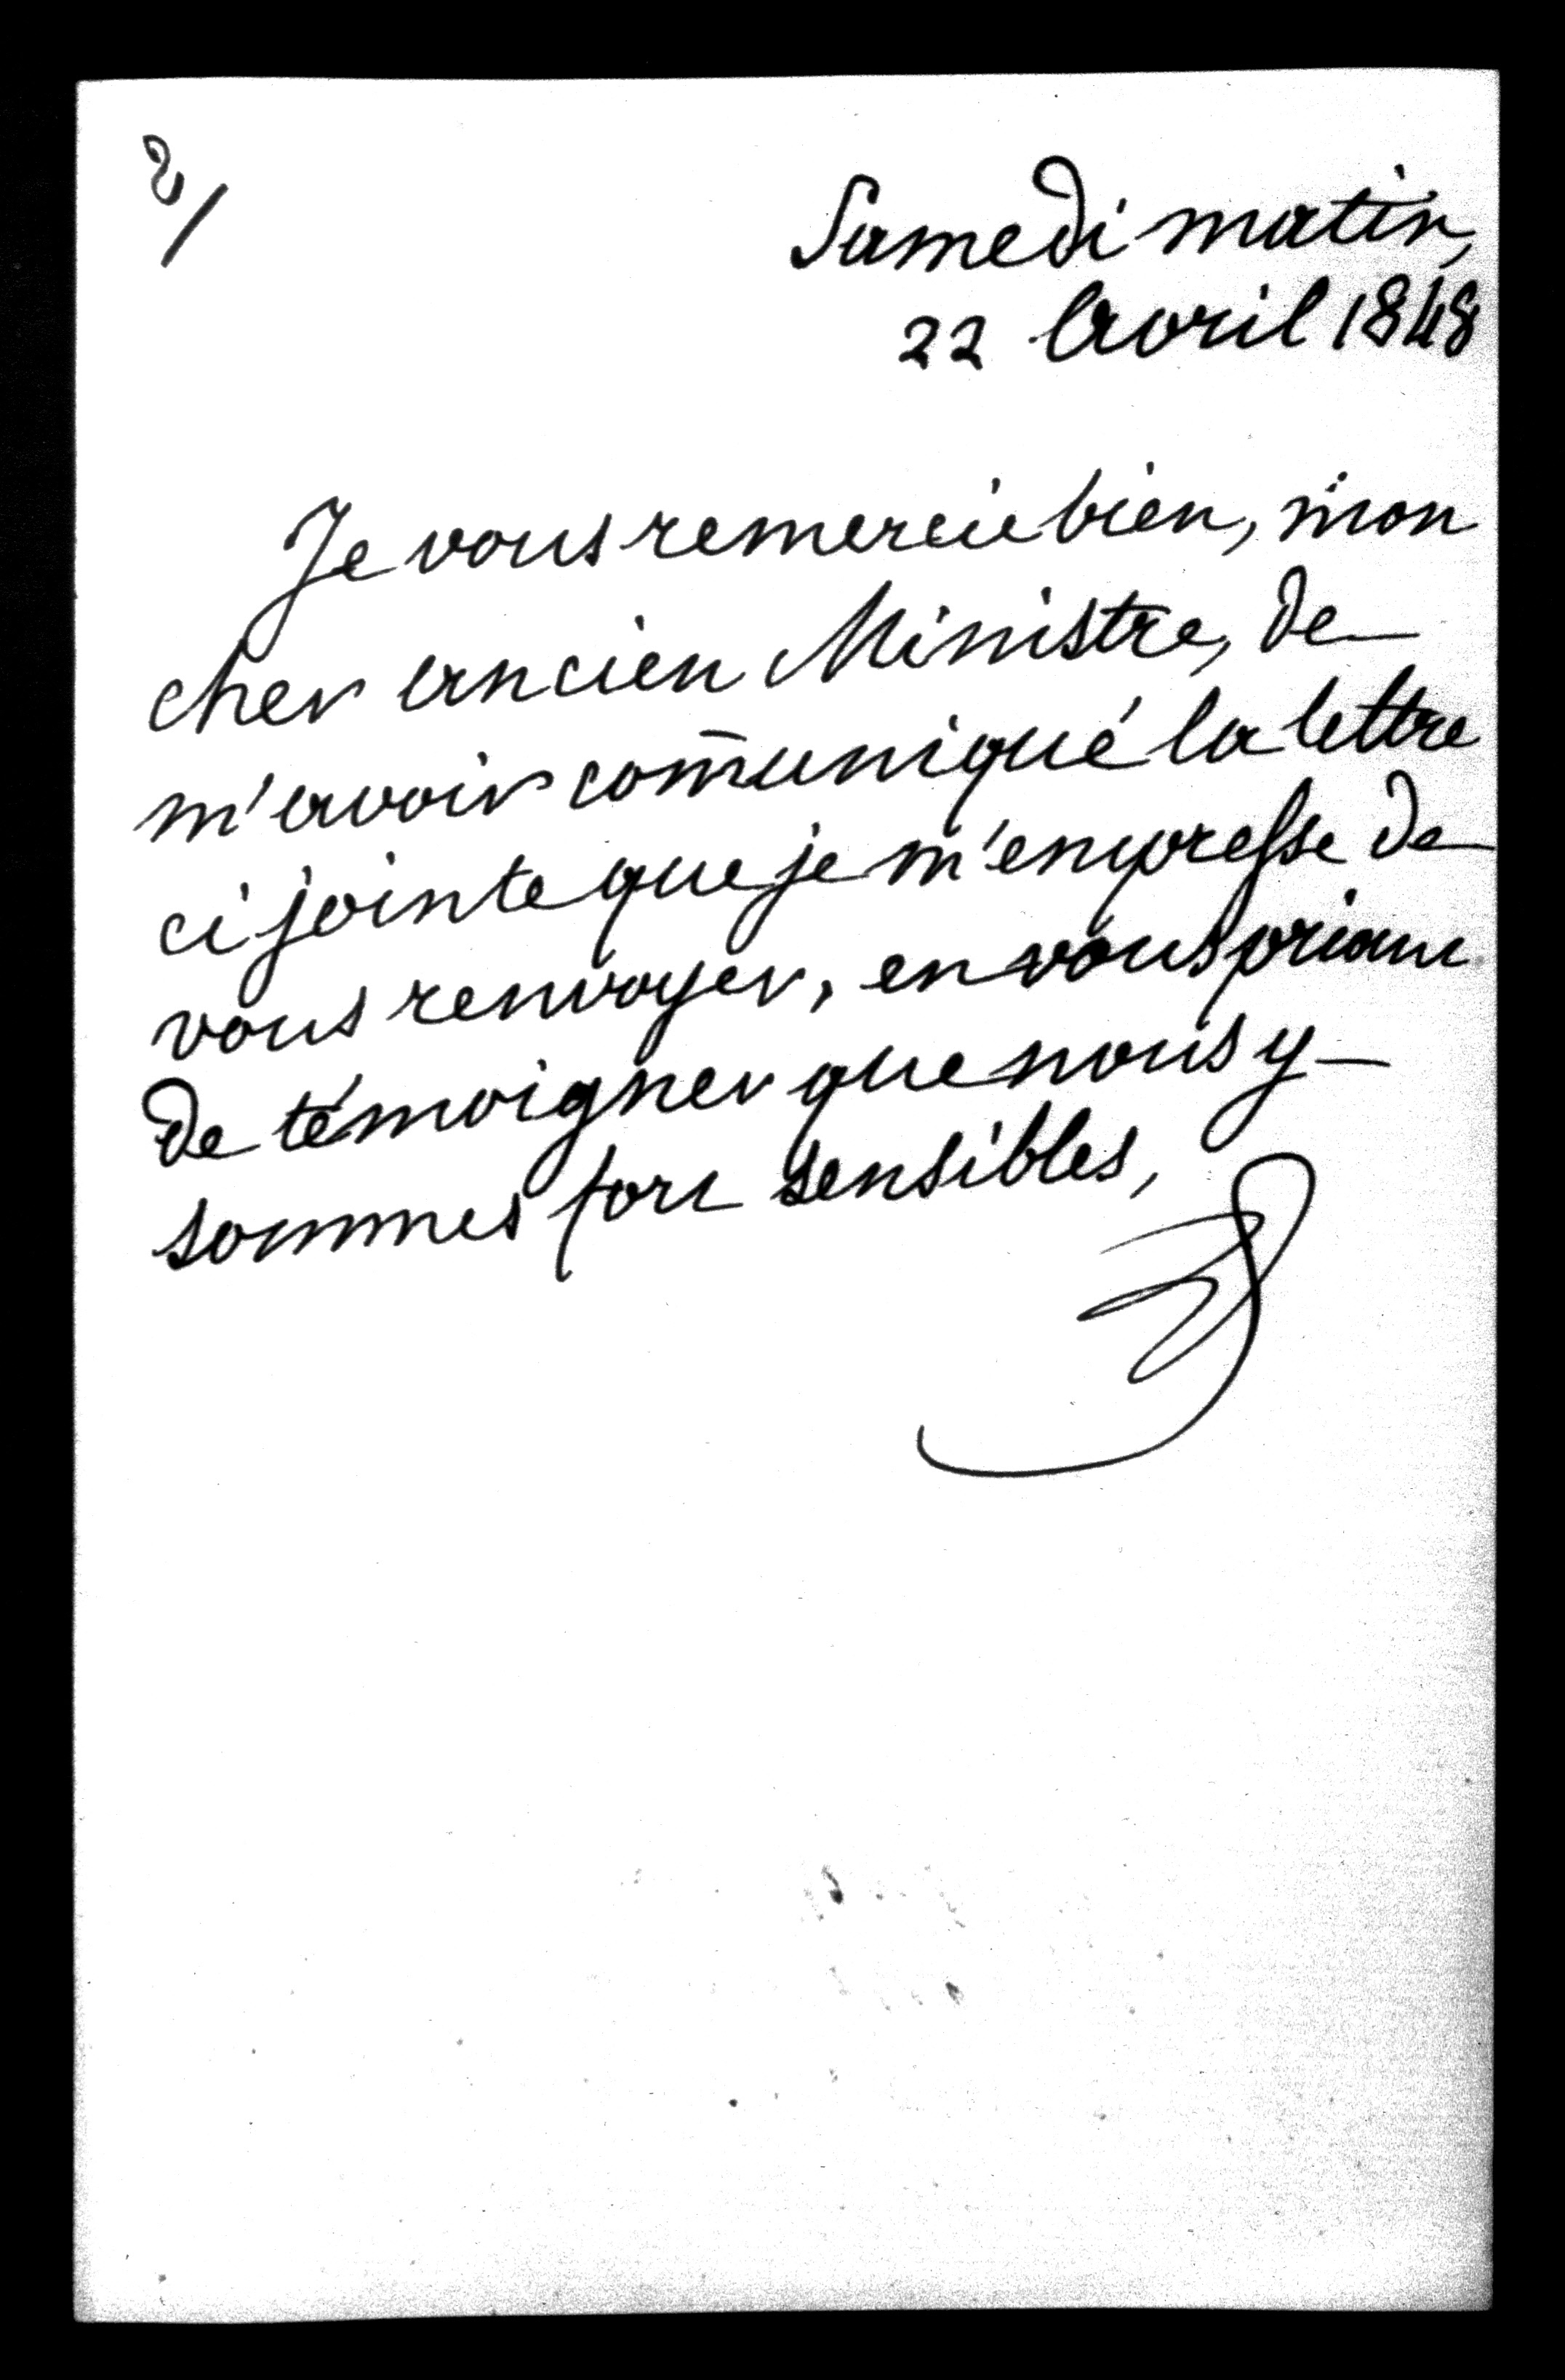 2/
Samedi matin,
22 Avril 1848
Je vous remercie bien, mon
cher ancien Ministre, de
m'avoir com̄uniqué la lettre
ci jointe que je m'empresse de
vous renvoyer, en vous priant
de témoigner que nous y
sommes fort sensibles,